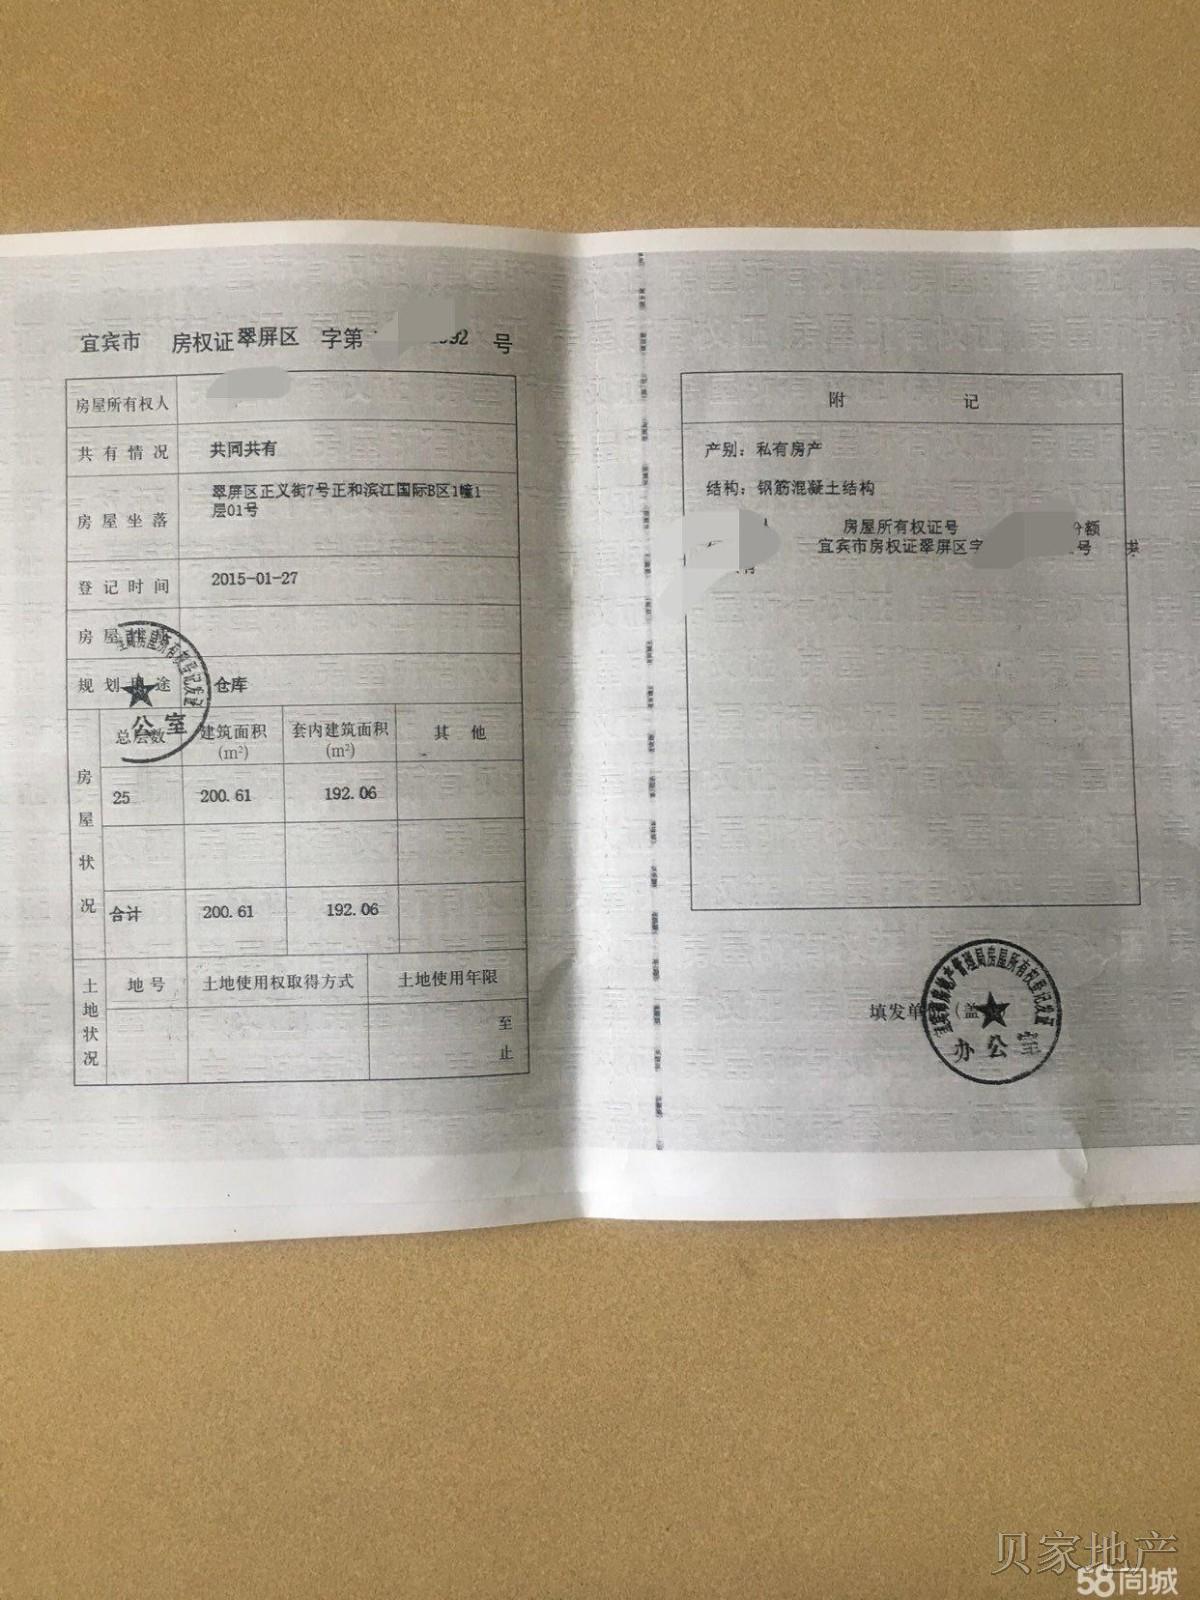 宜宾市 房权证 翠屏区 字第 992 号
房屋所有权人
共有情况 共同共有
房屋坐落 翠屏区正义街7号正和滨江国际B区1幢1
层01号
登记时间 2015-01-27
房屋
规划用途 仓库
房屋状况
总层数 建筑面积(m²) 套内建筑面积(m²) 其他
25 200.61 192.06
合计 200.61 192.06
土地状况
地号 土地使用权取得方式 土地使用年限
至
止
房屋所有权登记发证
公室
附 记
产别：私有房产
结构：钢筋混凝土结构
人 房屋所有权证号 份额
宜宾市房权证翠屏区字 号 共
有
填发单 (盖
宜宾市房地产管理局房屋所有权登记发证
办公室
贝家地产
58同城